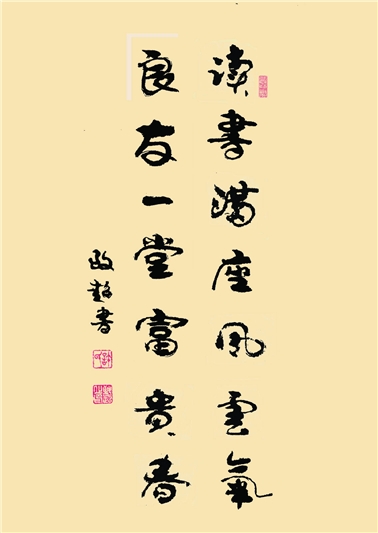 读書滿座风雲氣
良友一堂富貴春
政 書